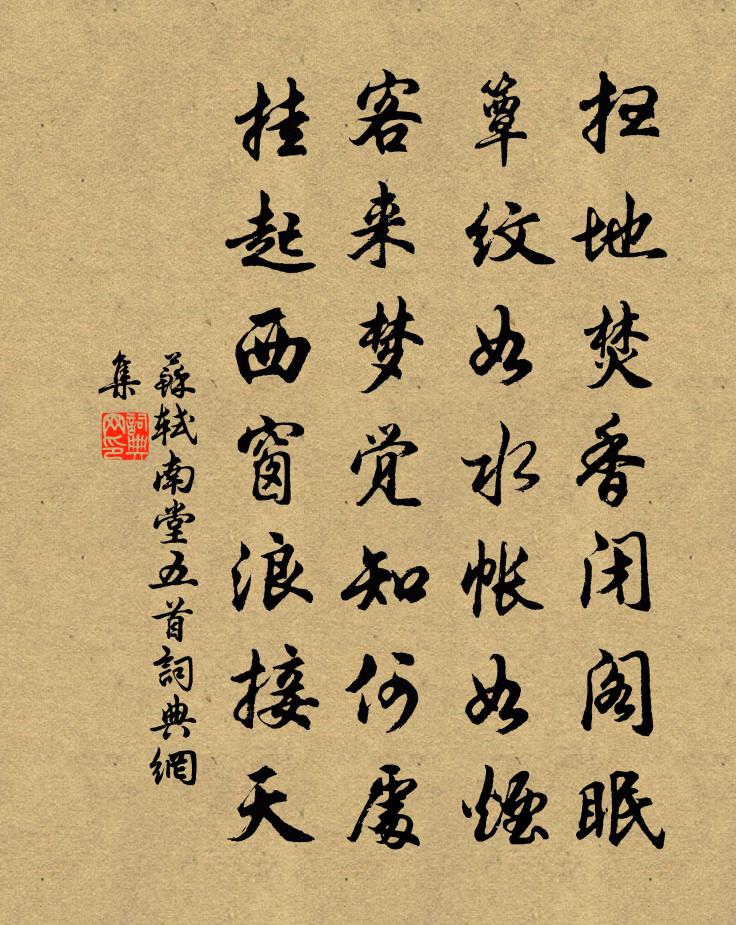 扫地焚香闭阁眠
簟纹如水帐如烟
客来梦觉知何處
挂起西窗浪接天
蘇軾南堂五首詞典網
集
詞典網印